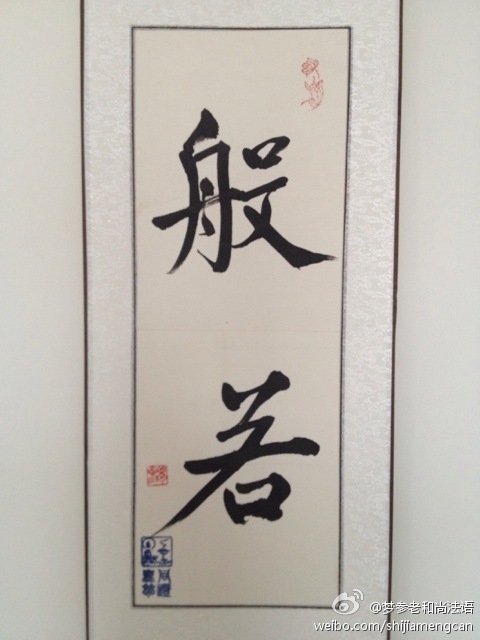 般
若
@梦参老和尚法语
weibo.com/shijiamengcan